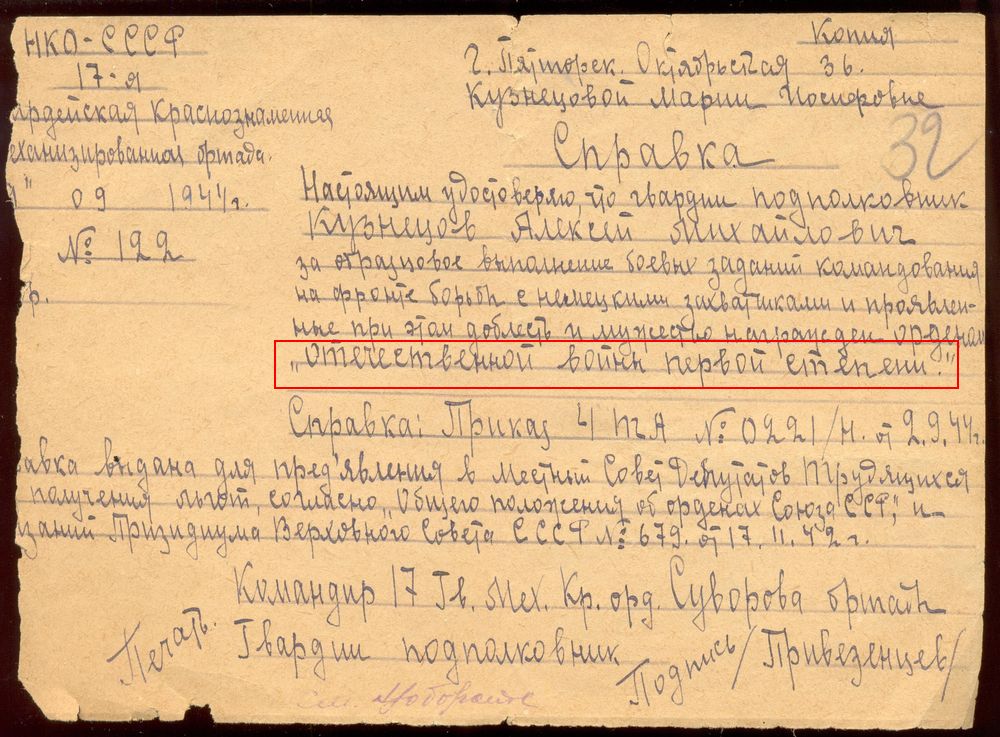 Копия
НКО-СССР
17-я
ардейская Краснознаменная
еханизированная бригада.
" 09 1944г.
№ 122
г. Пятигорск. Октябрьская 36.
Кузнецовой Марии Иосифовне
32
Справка
Настоящим удостоверяю, что гвардии подполковник
Кузнецов Алексей Михайлович
за образцовое выполнение боевых заданий командования
на фронте борьбы с немецкими захватчиками и проявлен-
ные при этом доблесть и мужество награжден орденом
"Отечественной войны первой степени."
Справка: Приказ 4 ТА № 0221/н. от 2.9.44г.
авка выдана для пред'явления в местный Совет Депутатов Трудящихся
получения льгот, согласно "Общего положения об орденах Союза ССР", и-
азаний Призидиума Верховного Совета СССР № 679. от 17. 11. 42 г.
Командир 17 Гв. Мех. Кр. орд. Суворова бригады
Гвардии подполковник
Печать.
Подпись /Привезенцев/
см. на обороте